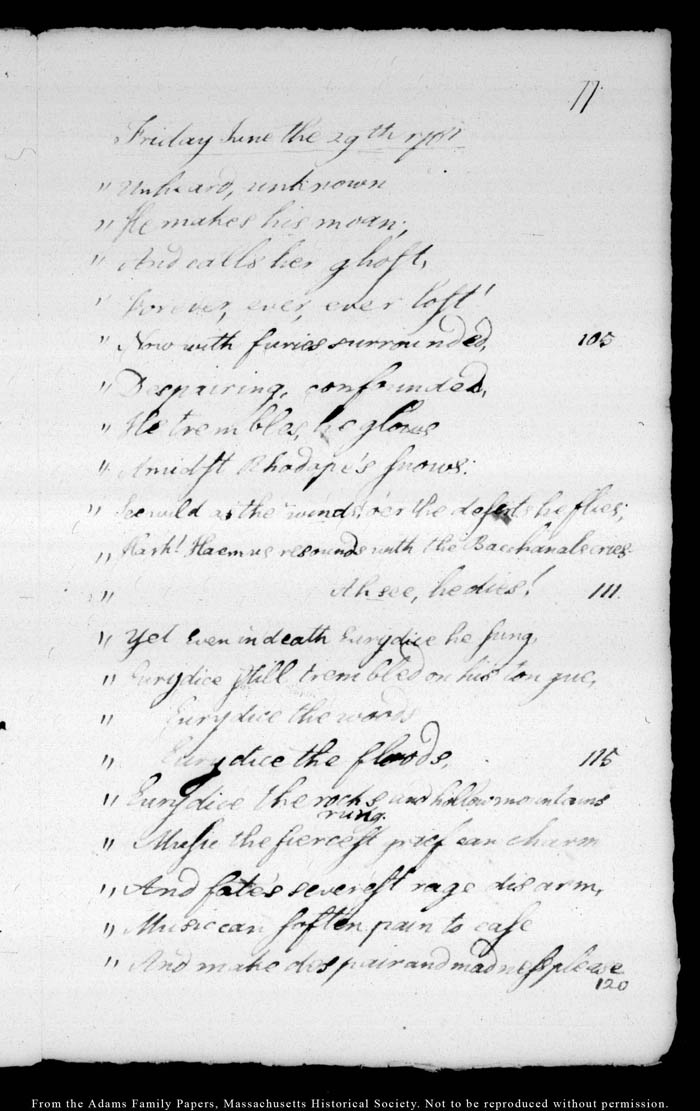 77
Friday June the 29th 1781
" Unheard, unknown
" He makes his moan;
" And calls her ghost,
" Forever, ever, ever lost!
" Now with furies surrounded, 105
" Despairing, confounded,
" He trembles, he glows
" Amidst Rhodope's snows:
" See wild as the winds, o'er the deserts he flies;
" Hark! Haemus resounds with the Bacchanals cries
" Ah see, he dies! 111
" Yet Even in death Eurydice he sung,
" Eurydice still trembled on his tongue,
" Eurydice the woods
" Eurydice the floods, 115
" Eurydice the rocks and hollow mountains
rung.
" Music the fiercest grief can charm
" And fate's severest rage disarm,
" Music can soften pain to ease
" And make despair and madness please
120
From the Adams Family Papers, Massachusetts Historical Society. Not to be reproduced without permission.